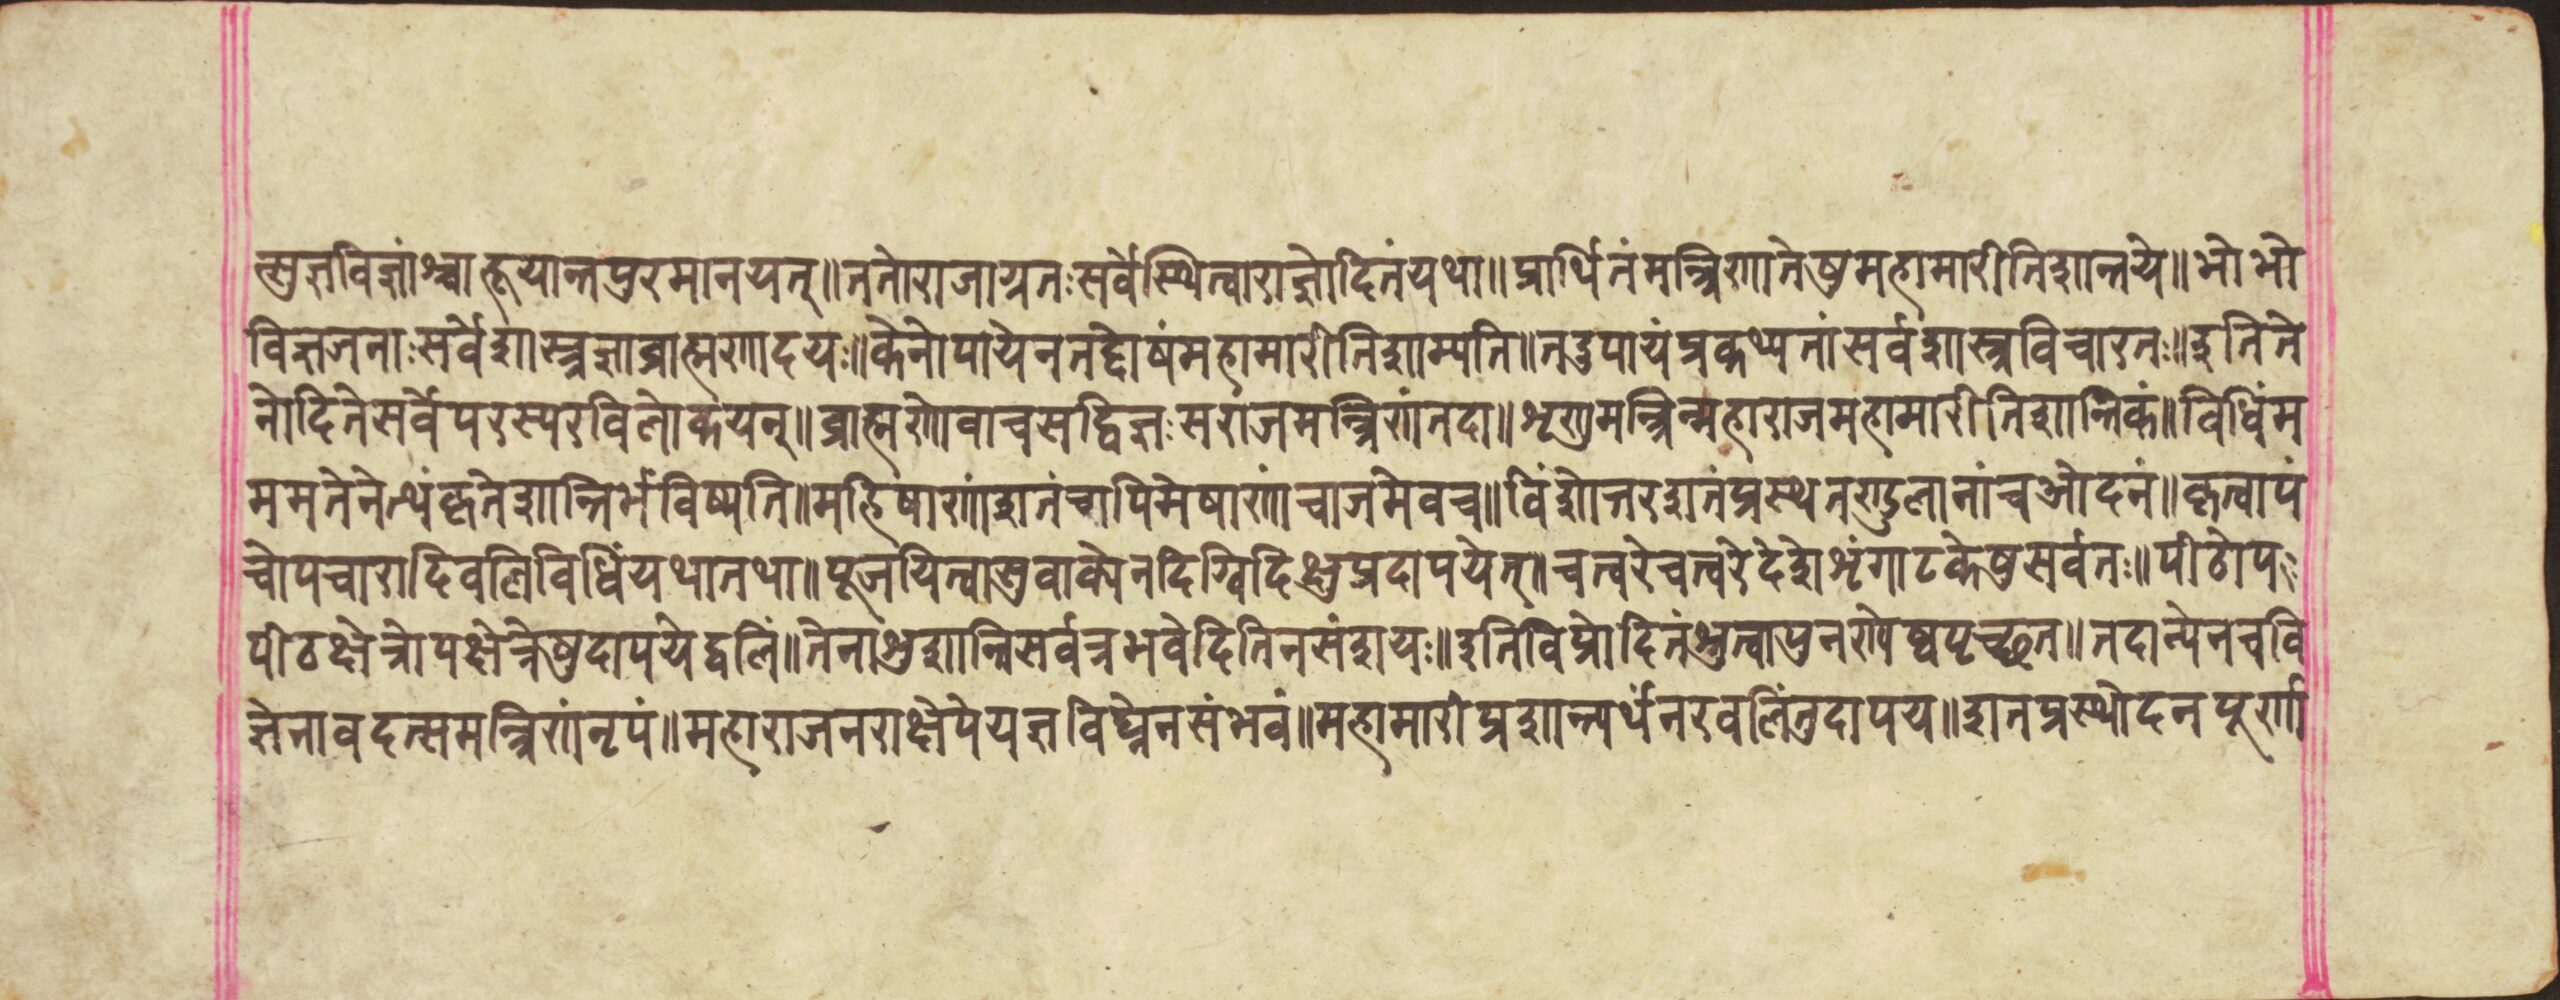 त्सुजविज्ञांश्चाहूयान्तपुरमानयत्॥ततोराजाग्रतःसर्वेस्थित्वाराज्ञोदितंयथा॥प्रार्थितंमन्त्रिणातेषुमहामारीतिशान्तये॥भोभो
विज्ञजनाःसर्वेशास्त्रज्ञाब्राह्मणादयः॥केनोपायेनतद्दोषंमहामारीतिशाम्यति॥तदुपायंप्रकथ्यतांसर्वशास्त्रविचारतः॥इतिते
नोदितेसर्वेपरस्परविलोकयन्॥ब्राह्मणोवाचसद्विज्ञःसराजमन्त्रिणंतदा॥शृणुमन्त्रिन्महाराजमहामारीतिशान्तिकं॥विधिंम
ममतेनेत्थंकृतेशान्तिर्भविष्यति॥महिषाणांशतंचापिमेषाणांचाजमेवच॥विंशोत्तरशतंप्रस्थतण्डुलानांचओदनं॥कृत्वापं
चोपचारादिवलिविधिंयथातथा॥पूजयित्वासुवाक्येनदिग्विदिक्षुप्रदापयेत्॥चत्वरेचत्वरेदेशेशृंगाटकेषुसर्वतः॥पीठोप
पीठक्षेत्रोपक्षेत्रेषुदापयेद्वलिं॥तेनाशुशान्तिसर्वत्रभवेदितिनसंशयः॥इतिविप्रोदितंश्रुत्वापुनरोष्वपृच्छत॥तदान्येनचवि
ज्ञेनावदत्समन्त्रिणंनृपं॥महाराजनराक्षेपेयज्ञविघ्नेनसंभवं॥महामारीप्रशान्त्यर्थंनरवलिंतुदापय॥शतप्रस्थोदनपूर्ण